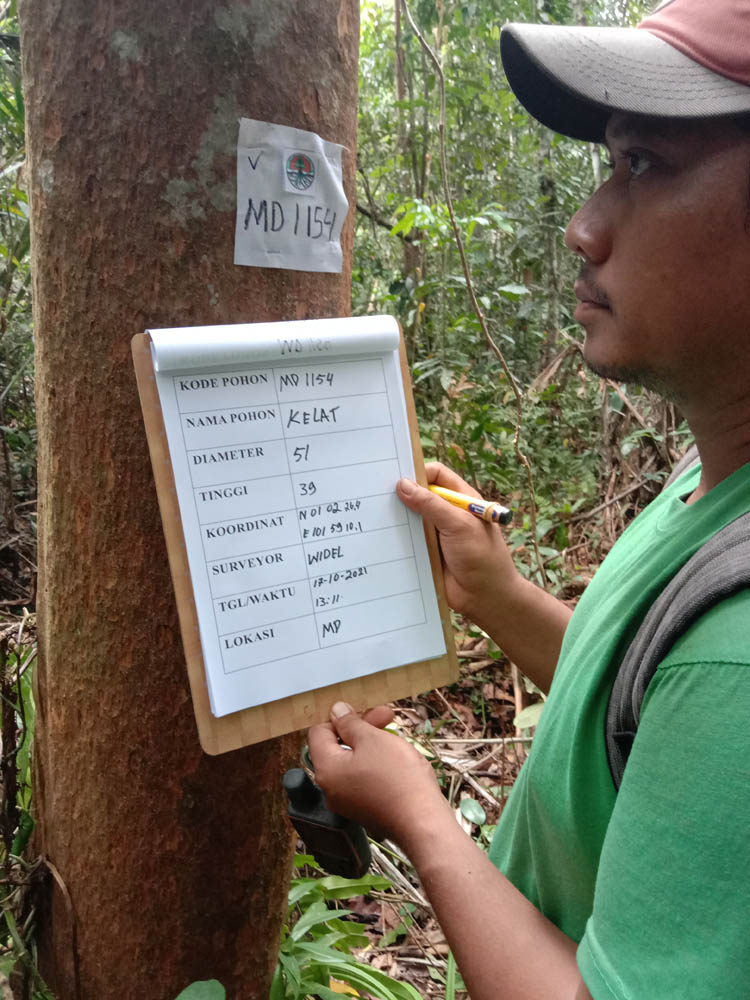 ✓
MD 1154
KODE POHON MD 1154
NAMA POHON KELAT
DIAMETER 51
TINGGI 39
KOORDINAT N 01 02 26,9
E 101 59 10,1
SURVEYOR WIDEL
TGL/WAKTU 17-10-2021
13:11
LOKASI MD